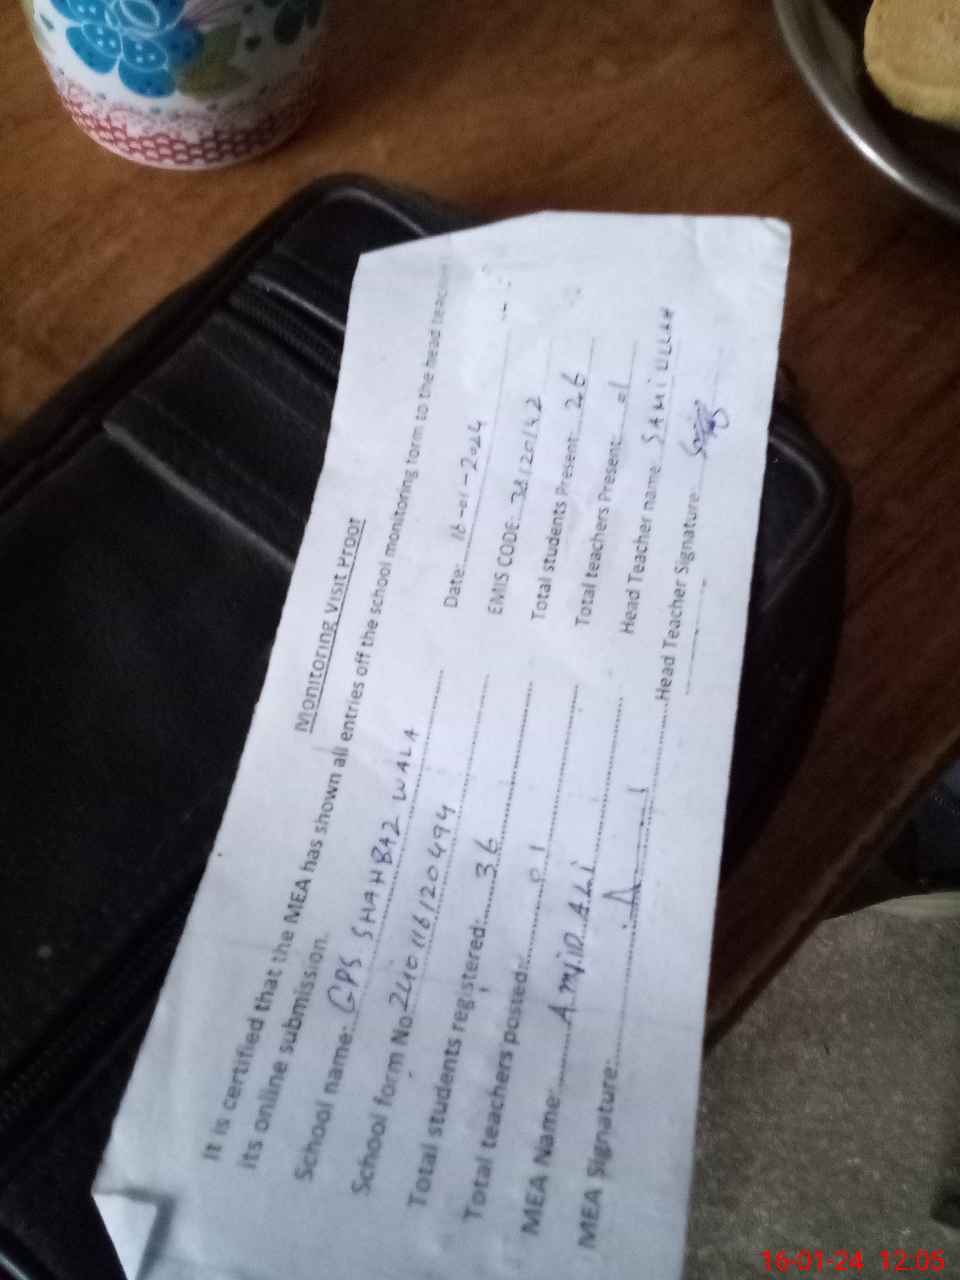 Monitoring Visit Proof
It is certified that the MEA has shown all entries off the school monitoring form to the head teacher
its online submission.
School name: GPS SHAHBAZ WALA Date: 16-01-2024
School form No 240116120494 EMIS CODE: 38120142
Total students registered: 36 Total students Present: 26
Total teachers posted: 01 Total teachers Present: 01
MEA Name: Amjid Ali Head Teacher name: SAMI ULLAH
MEA Signature: Head Teacher Signature:
16-01-24 12:05